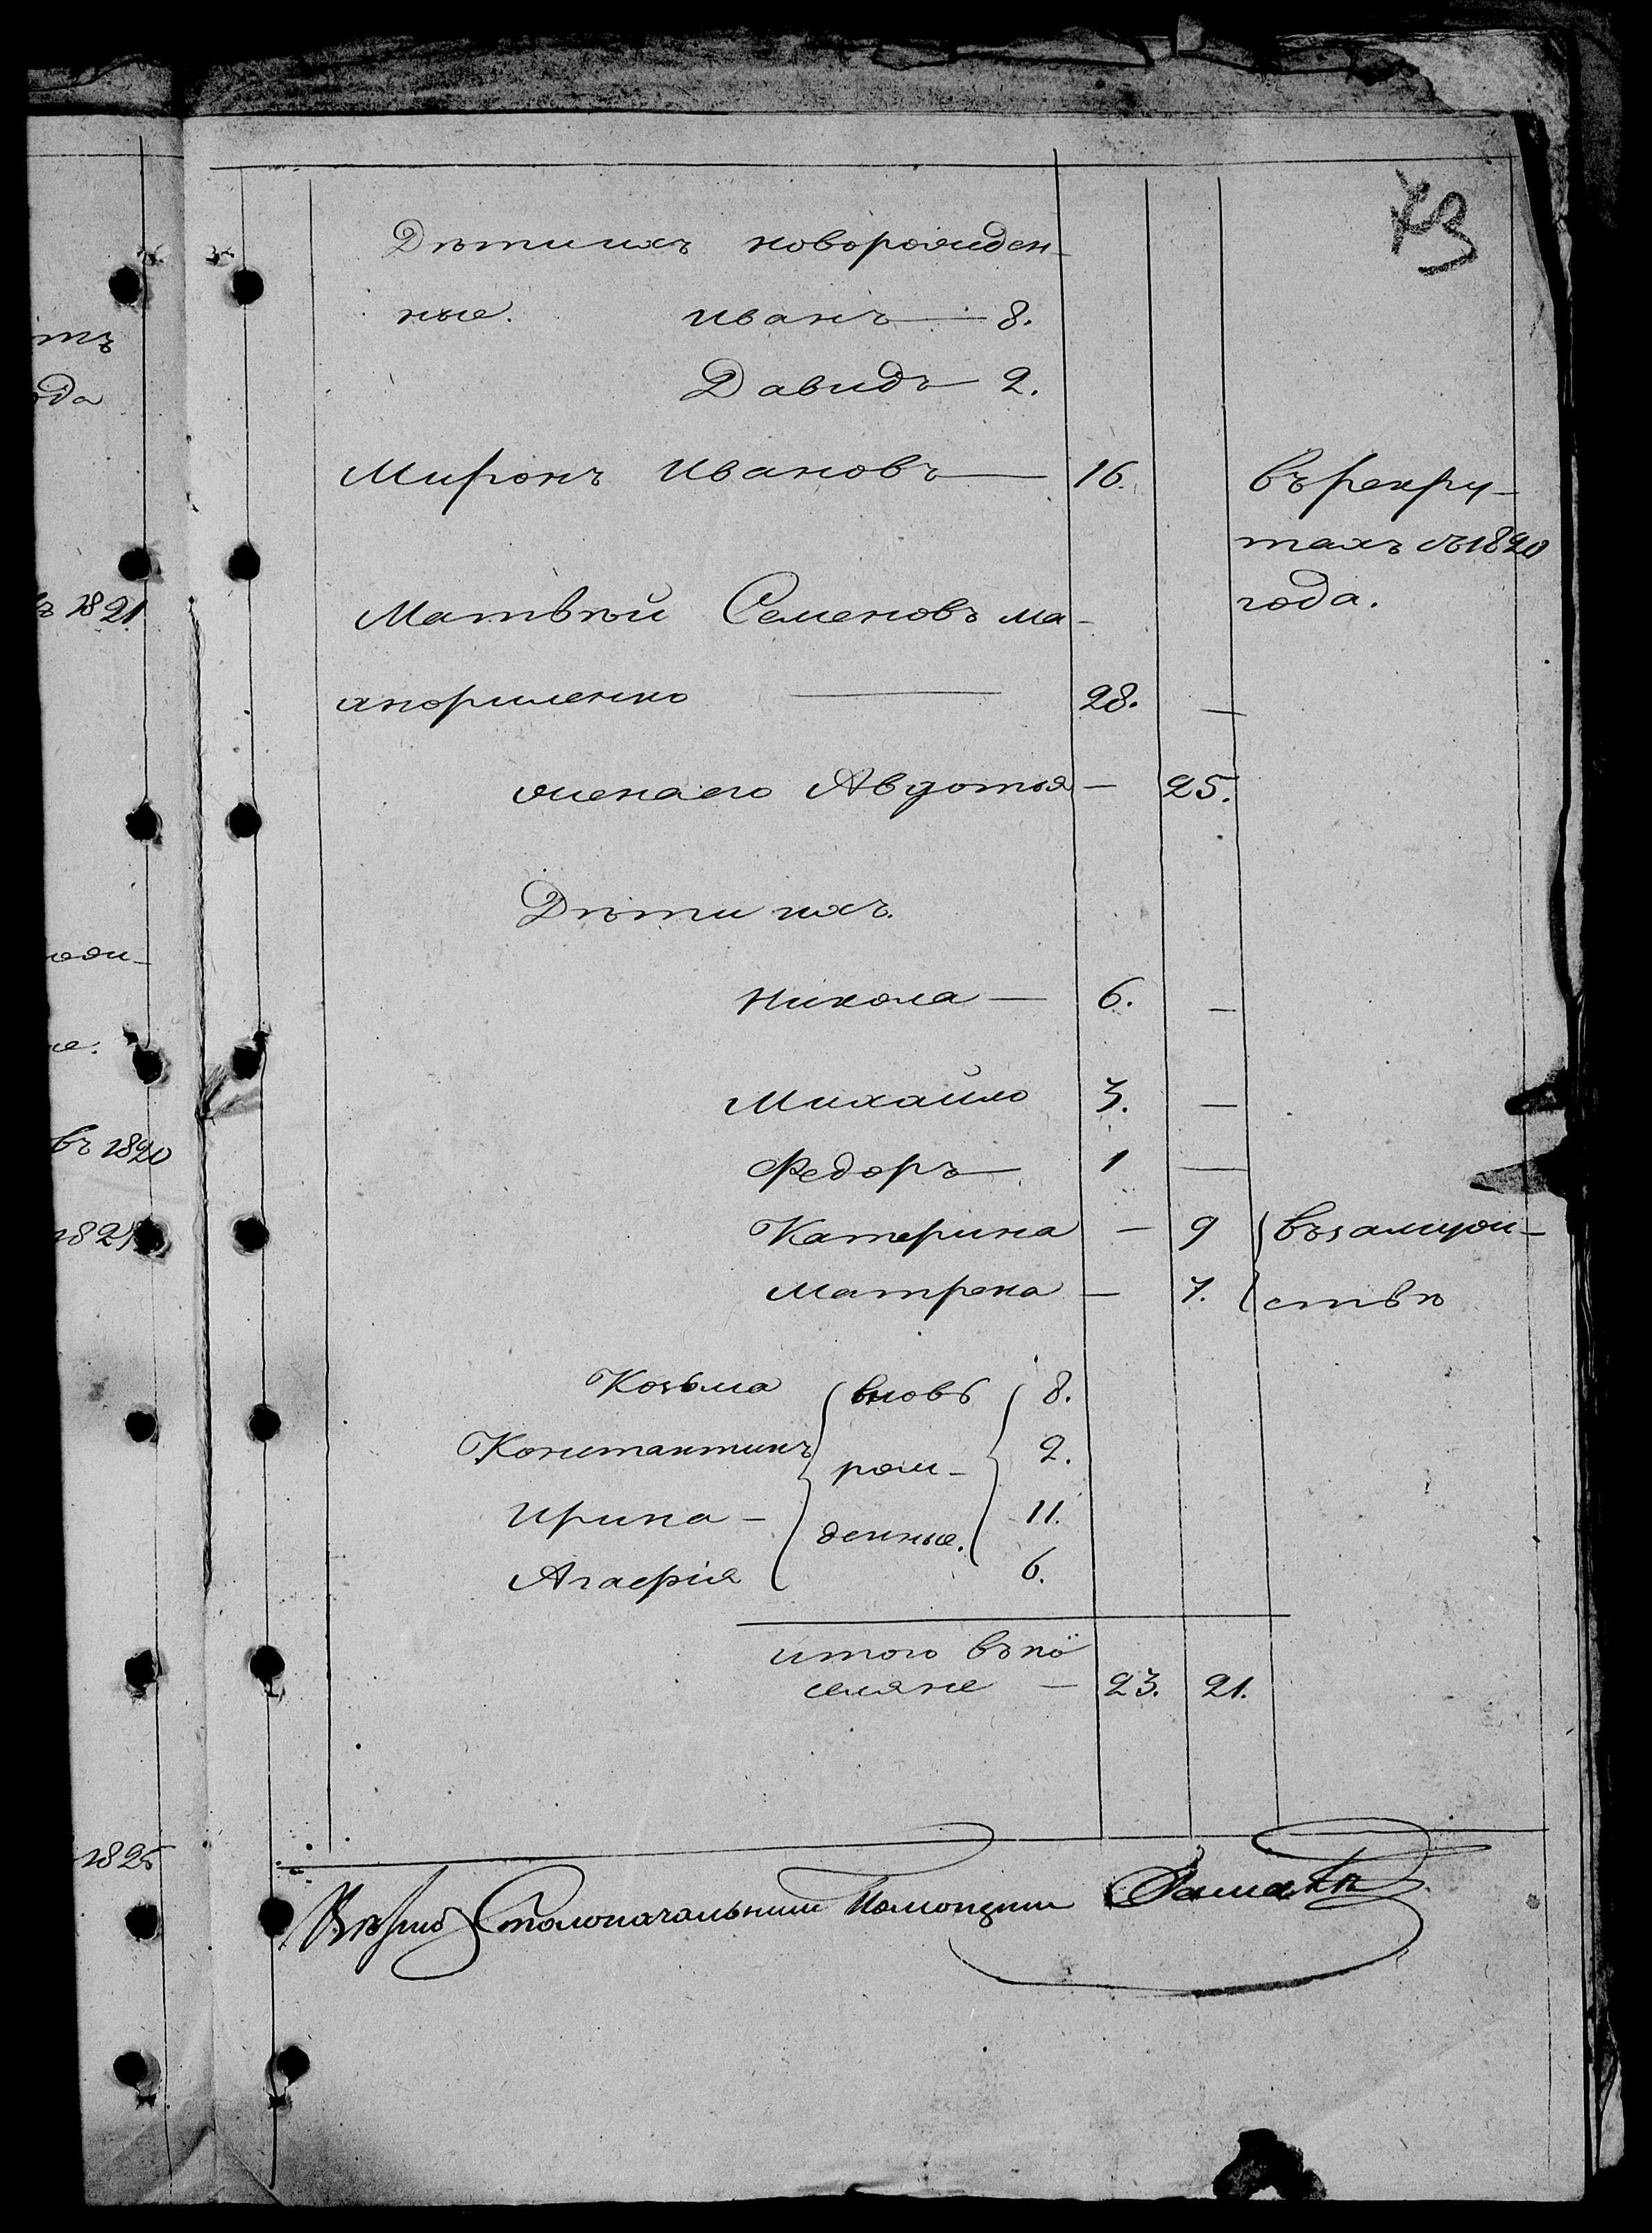 73
Дѣти ихъ новорожден-
ные. Иванъ — 8.
Давидъ — 2.
Миронъ Ивановъ — 16. въ рекру-
тахъ съ 1820
года.
Матвѣй Семеновъ Ма-
28. —
жена его Авдотья — 25.
Дѣти ихъ.
Никола — 6. —
Михайло 3. —
Федоръ — 1 —
Катерина — 9 въ замуж-
Матрена — 7. ствѣ
Козьма вновь 8.
Константинъ рож- 2.
Ирина — денные. 11.
Агафія 6.
итого въ по
селяне — 23. 21.
Вѣрно Столоначальникъ Помощник
тъ
ода
1821
въ 1820
182
1825